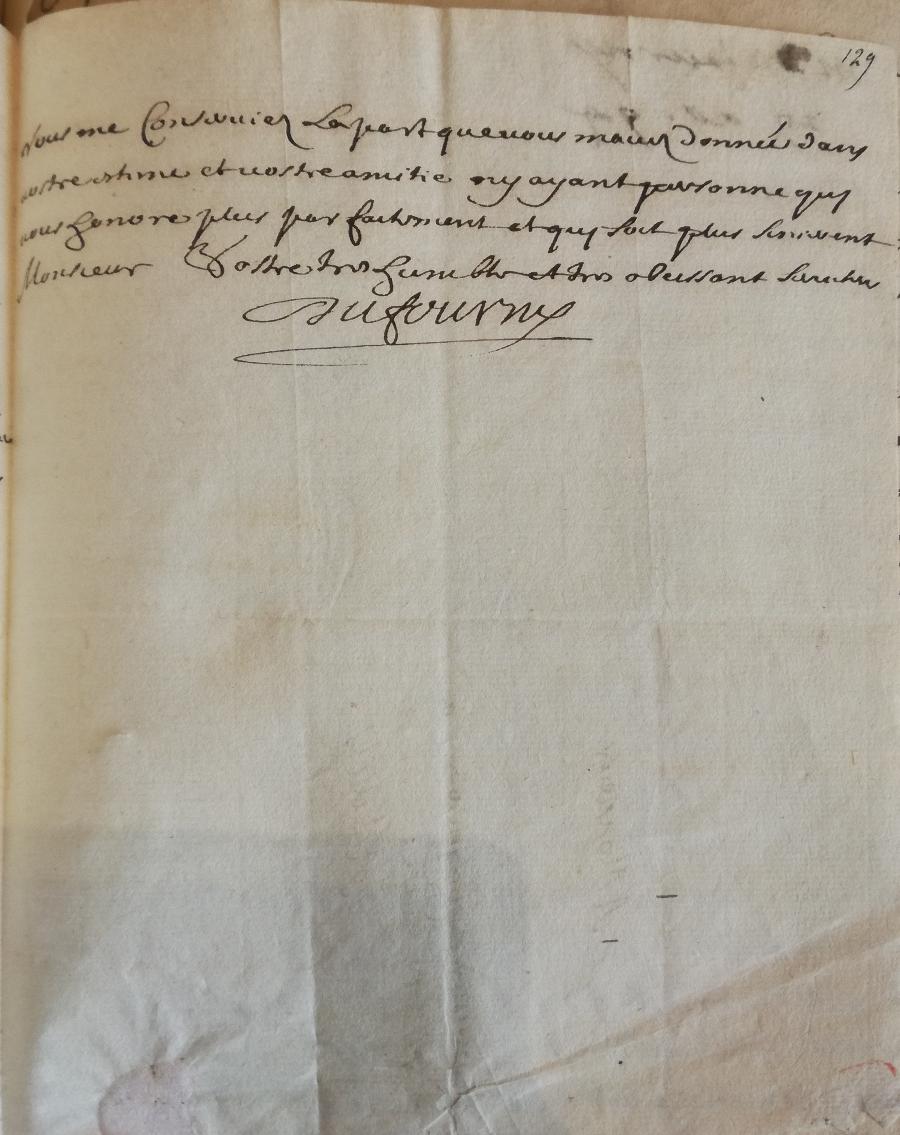 129
vous me Conserviez La part que vous mavez donnée dans
vostre estime et vostre amitie ny ayant personne quy
vous honore plus parfaitement et quy soit plus
Monsieur Vostre tres humble et tres obeissant serviteur
Dufourny